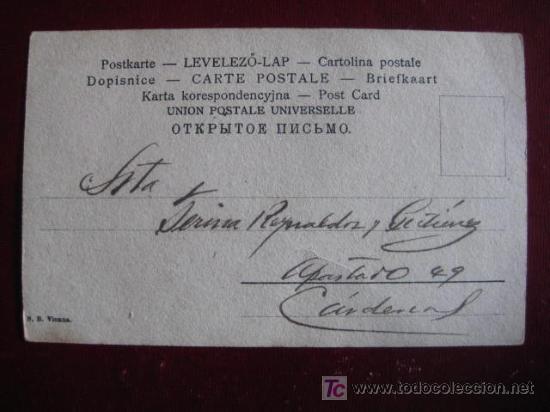 Postkarte — LEVELEZŐ-LAP — Cartolina postale
Dopisnice — CARTE POSTALE — Briefkaart
Karta korespondencyjna — Post Card
UNION POSTALE UNIVERSELLE
ОТКРЫТОЕ ПИСЬМО.
Srta
Reynaldos y Gutiérrez
Apartado 49
Cárdenas
B. Vienna.
TC
todocoleccion.net